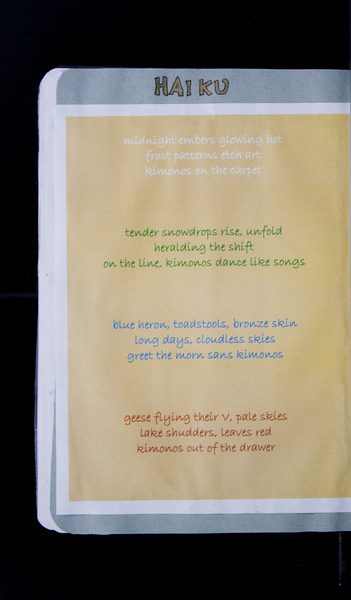 HAIKU
midnight embers glowing hot
frost patterns etch art
kimonos on the carpet
tender snowdrops rise, unfold
heralding the shift
on the line, kimonos dance like songs
blue heron, toadstools, bronze skin
long days, cloudless skies
greet the morn sans kimonos
geese flying their V, pale skies
lake shudders, leaves red
kimonos out of the drawer